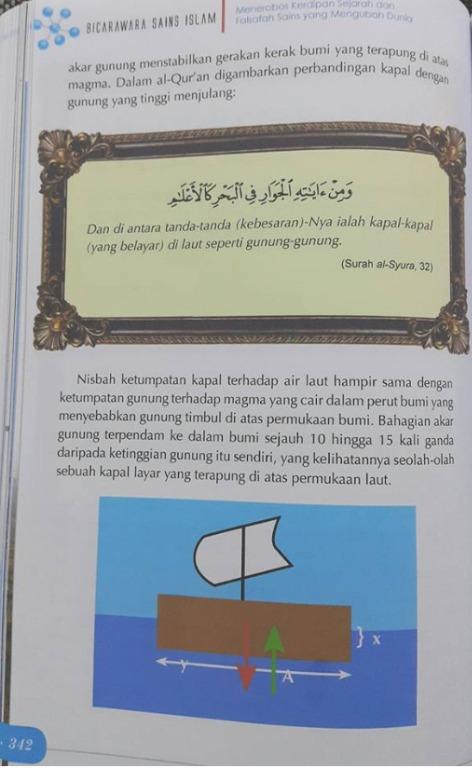 BICARAWARA SAINS ISLAM
Menerobos Kerdipan Sejarah dan
Falsafah Sains yang Mengubah Dunia
akar gunung menstabilkan gerakan kerak bumi yang terapung di atas
magma. Dalam al-Qur'an digambarkan perbandingan kapal dengan
gunung yang tinggi menjulang:
وَمِنْ ءَايَٰتِهِ ٱلْجَوَارِ فِى ٱلْبَحْرِ كَٱلْأَعْلَٰمِ
Dan di antara tanda-tanda (kebesaran)-Nya ialah kapal-kapal
(yang belayar) di laut seperti gunung-gunung.
(Surah al-Syura, 32)
Nisbah ketumpatan kapal terhadap air laut hampir sama dengan
ketumpatan gunung terhadap magma yang cair dalam perut bumi yang
menyebabkan gunung timbul di atas permukaan bumi. Bahagian akar
gunung terpendam ke dalam bumi sejauh 10 hingga 15 kali ganda
daripada ketinggian gunung itu sendiri, yang kelihatannya seolah-olah
sebuah kapal layar yang terapung di atas permukaan laut.
x
y
A
342